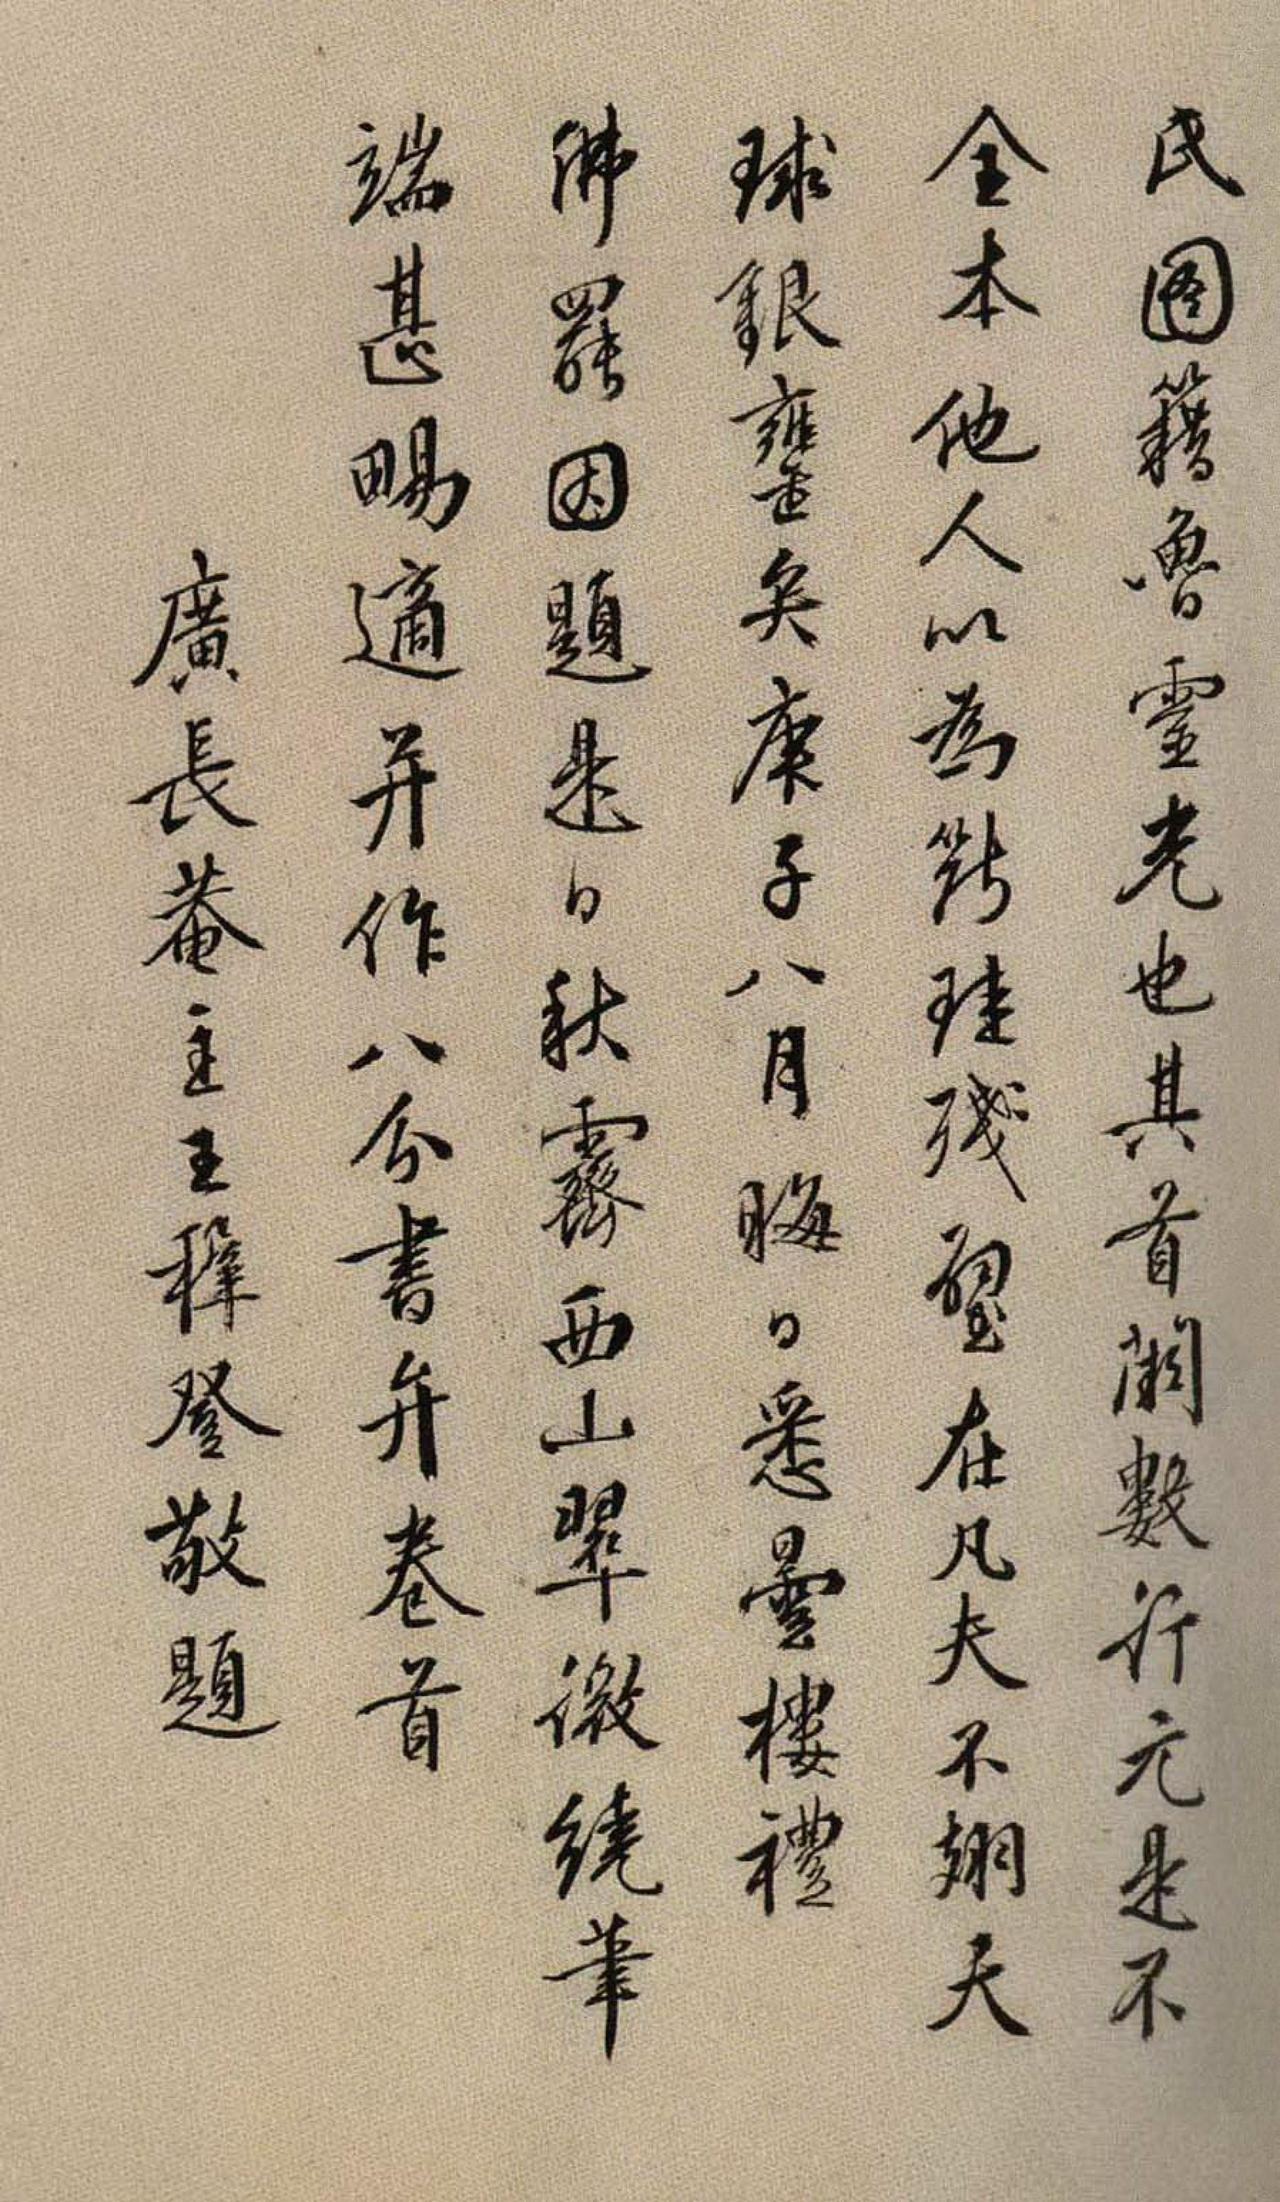 民圖籍魯靈光也其首闕數行元是不
全本他人以為斷珪殘璧在凡夫不翅天
球銀甕矣庚子八月晦日悉曇樓禮
佛罷因題是日秋霽西山翠微繞筆
端甚暢適并作八分書弁卷首
廣長菴主王穉登敬題